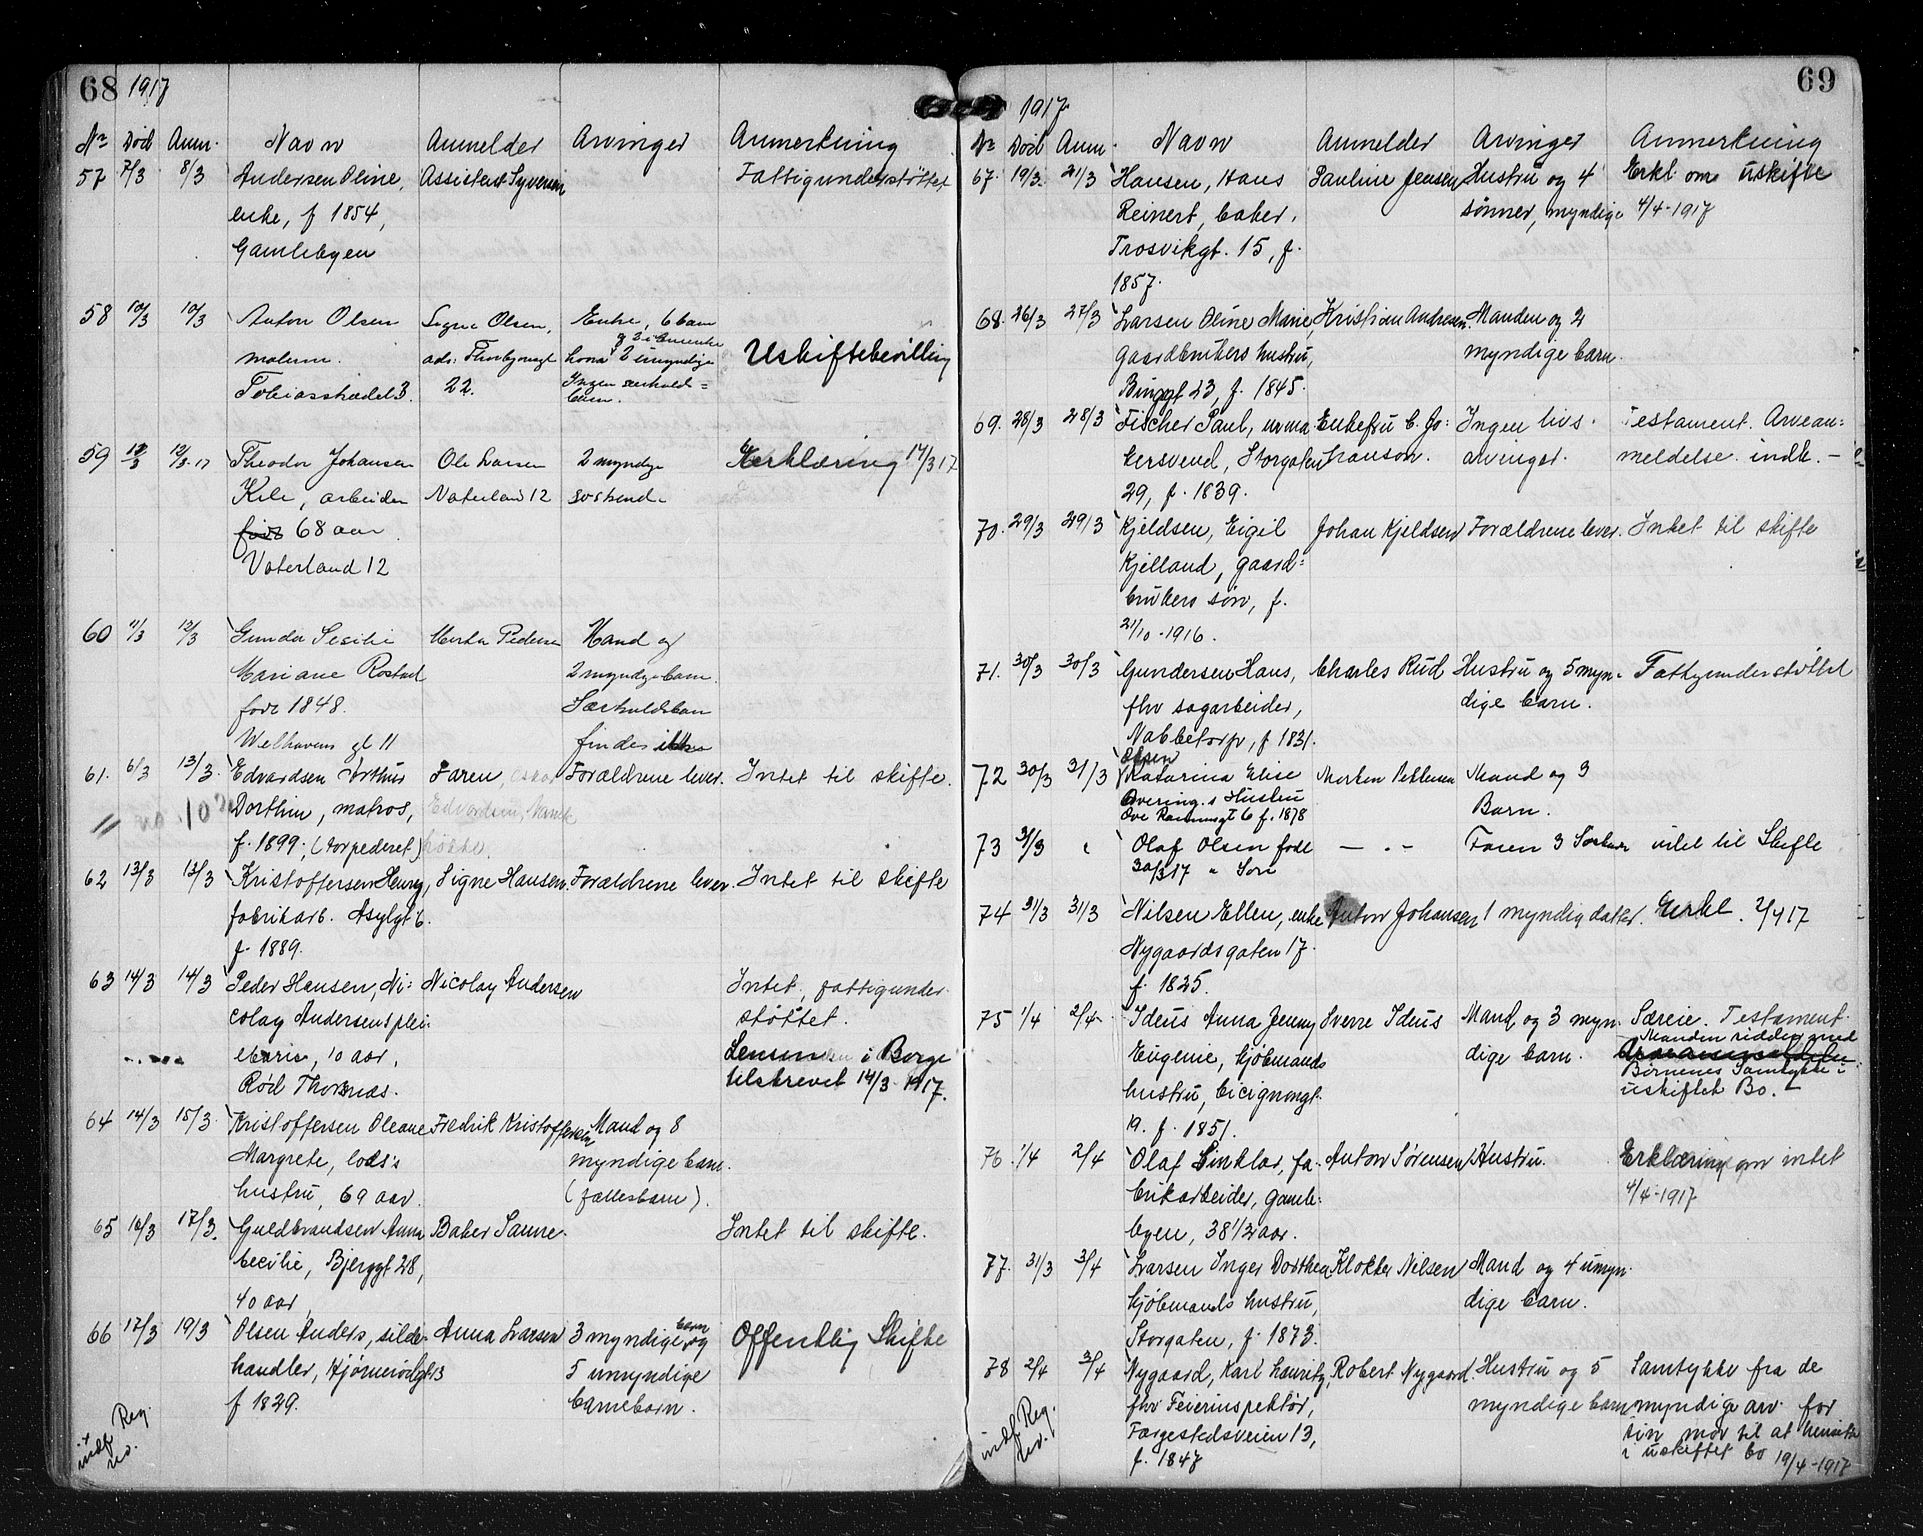 68 1917
No Død Anm. Navn Anmelder Arvinger Anmerkning
57 7/3 8/3 Andersen Oline, Assistent Syversen Fattigunderstøttet
enke, f 1854,
Gamlebyen
58 10/3 10/3 Anton Olsen Signe Olsen, Enke, 6 barn
malerm. ads: Thorbjørnsgt hvoraf 2 umyndige Uskiftebevilling
Tobiasstrædet 3. 22. Ingen særkuld=
barn.
59 12/3 12/3 17 Theodor Johansen Ole Larsen 2 myndige Erklæring 14/3 17
arbeider Vaterland 12 søskende
født 68 aar
Vaterland 12
60 11/3 12/3 Gunda Sesilie Pedersen Mand og
Mariane Rostad 2 myndige barn.
født 1848. Særkuldsbarn
Welhavens gt 11 findes ikke
61. 6/3 13/3. Edvardsen Arthur Faren, Forældrene lever. Intet til skifte.
Dorthin, matros, Edvardsen,
f. 1899. (torpederet)
62 13/3 13/3 Kristoffersen Henry, Signe Hansen. Forældrene lever. Intet til skifte
fabrikarb. Asylgt 6.
f. 1889.
63 14/3 14/3 Peder Hansen, Ni= Nicolay Andersen Intet, fattigunder
colay Andersens plei= støttet.
10 aar, i Borge
Rød Thorsnæs. tilskrevet 14/3 1917.
64 14/3 15/3. Kristoffersen Oleane Fredrik Kristoffersen Mand og 8
Margrete, lods's myndige barn.
hustru, 69 aar (fællesbarn).
65 16/3 17/3. Guldbrandsen Anna Baker Sanne. Intet til skifte.
Cecilie, Bjerggt 28,
40 aar
66 17/3 19/3 Olsen Anders, silde= Anna Larsen 3 myndige barn og Offentlig Skifte
handler, 5 umyndige
f 1829. barnebarn.
indf Reg.
69
1917
No Død Anm. Navn Anmelder Arvinger Anmerkning
67. 19/3. 21/3 Hansen, Hans Pauline Jensen Hustru og 4 Erkl. om uskifte
Reinert, baker. sønner, myndige 4/4-1917
Trosvikgt. 15, f.
1857.
68. 26/3 27/3 Larsen Oline Marie, Kristian Andresen. Manden og 2
gaardbrukers hustru, myndige barn.
23, f. 1845.
69. 28/3 28/3 Fischer Paul, urma= Enkefru C. Jo= Ingen livs= Testament. Arvean=
kersvend, Storgaten hanson. arvinger. meldelse indk. -
29, f. 1839.
70. 29/3 29/3 Kjeldsen, Eigil Johan Kjeldsen Forældrene lever. Intet til skifte
Kjelland, gaard=
brukers søn, f.
21/10-1916.
71. 30/3 30/3 Gundersen Hans, Charles Rud Hustru og 5 myn= Fattigunderstøttet
fhv sagarbeider, dige barn.
Nabbetorp, f 1831.
Olsen
72 30/3 31/3 Katarina Elise Morten Pettersen Mand og 3
Hustru Barn.
Ove Rammsgt 6 f. 1878
73 31/3 " Olaf Olsen født — . — Faren 3 Søskende intet til Skifte
30/3 17
74 31/3 31/3 Nilsen Ellen, enke Anton Johansen 1 myndig datter. Erkl. 2/4 17
Nygaardsgaten 17.
f. 1825.
75 1/4 2/4 Ideus Anna Jenny Sverre Ideus Mand og 3 myn= Særeie. Testament.
Eugenie, kjøbmands dige barn. Manden sidder med
hustru, Cicignongt. Børnenes Samtykke i
19. f. 1851. uskiftet Bo. -
76. 1/4 2/4 Olaf Sinklar, fa= Anton Sørensen Hustru. Erklæring om intet
brikarbeider, Gamle= 4/4-1917
byen, 38 1/2 aar.
77. 31/3 3/4 Larsen Inger Dorthea Klokker Nilsen Mand og 4 umyn=
kjøbmands hustru, dige barn.
Storgaten, f. 1873.
78 2/4 3/4 Nygaard, Karl Lauritz, Robert Nygaard. Hustru og 5 Samtykke fra de
fhv Feierinspektør, myndige barn myndige arv. for
Færgestedsveien 13, sin mor til at hensitte
f. 1847 i uskiftet bo 19/4-1917
indf Reg.